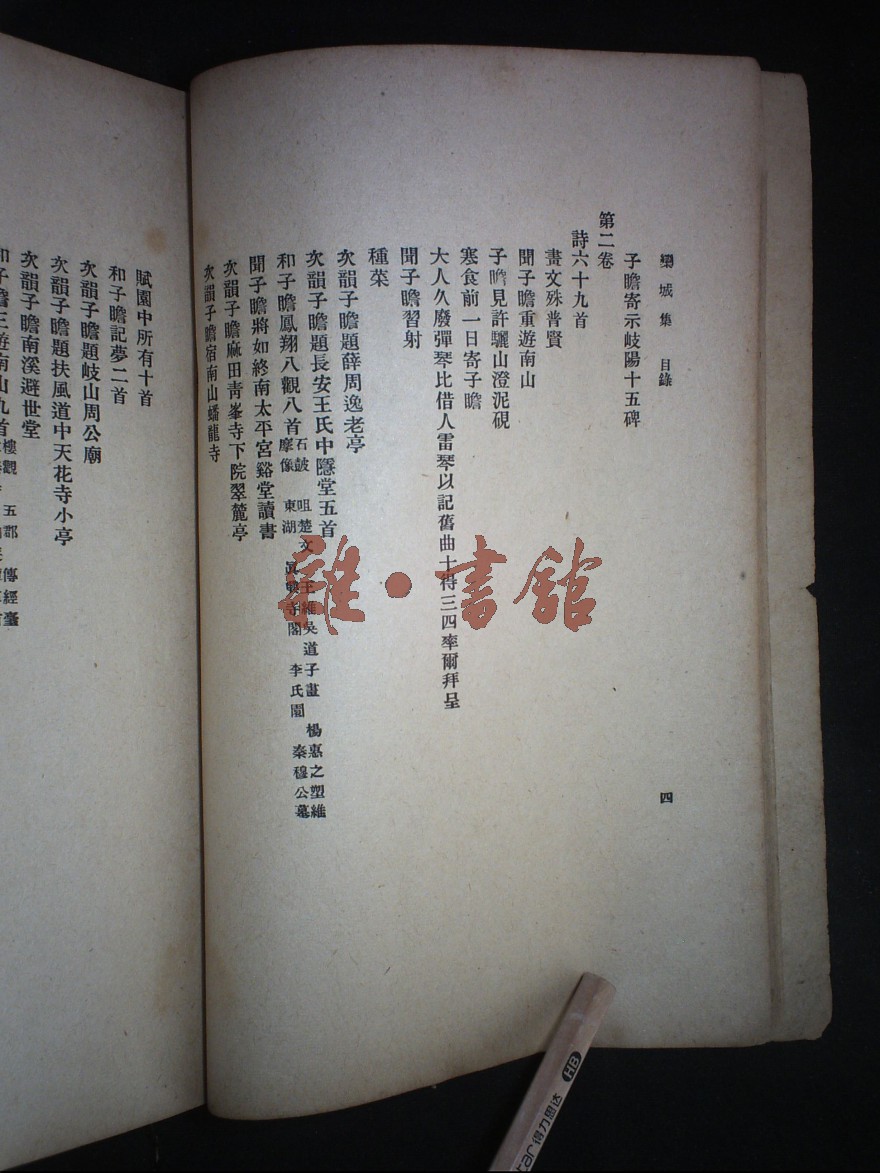 欒城集 目錄 四
子瞻寄示岐陽十五碑
第二卷
詩六十九首
畫文殊普賢
聞子瞻重遊南山
子瞻見許驪山澄泥硯
寒食前一日寄子瞻
大人久廢彈琴比借人雷琴以記舊曲十得三四率爾拜呈
聞子瞻習射
種菜
次韻子瞻題薛周逸老亭
次韻子瞻題長安王氏中隱堂五首
和子瞻鳳翔八觀八首
石鼓 咀楚文 王維吳道子畫 楊惠之塑維
摩像 東湖 真興寺閣 李氏園 秦穆公墓
聞子瞻將如終南太平宮谿堂讀書
次韻子瞻麻田青峯寺下院翠麓亭
次韻子瞻宿南山蟠龍寺
賦園中所有十首
和子瞻記夢二首
次韻子瞻題岐山周公廟
次韻子瞻題扶風道中天花寺小亭
次韻子瞻南溪避世堂
和子瞻三遊南山九首
樓觀 五郡 傳經臺
雜·書館
HB
得力思达